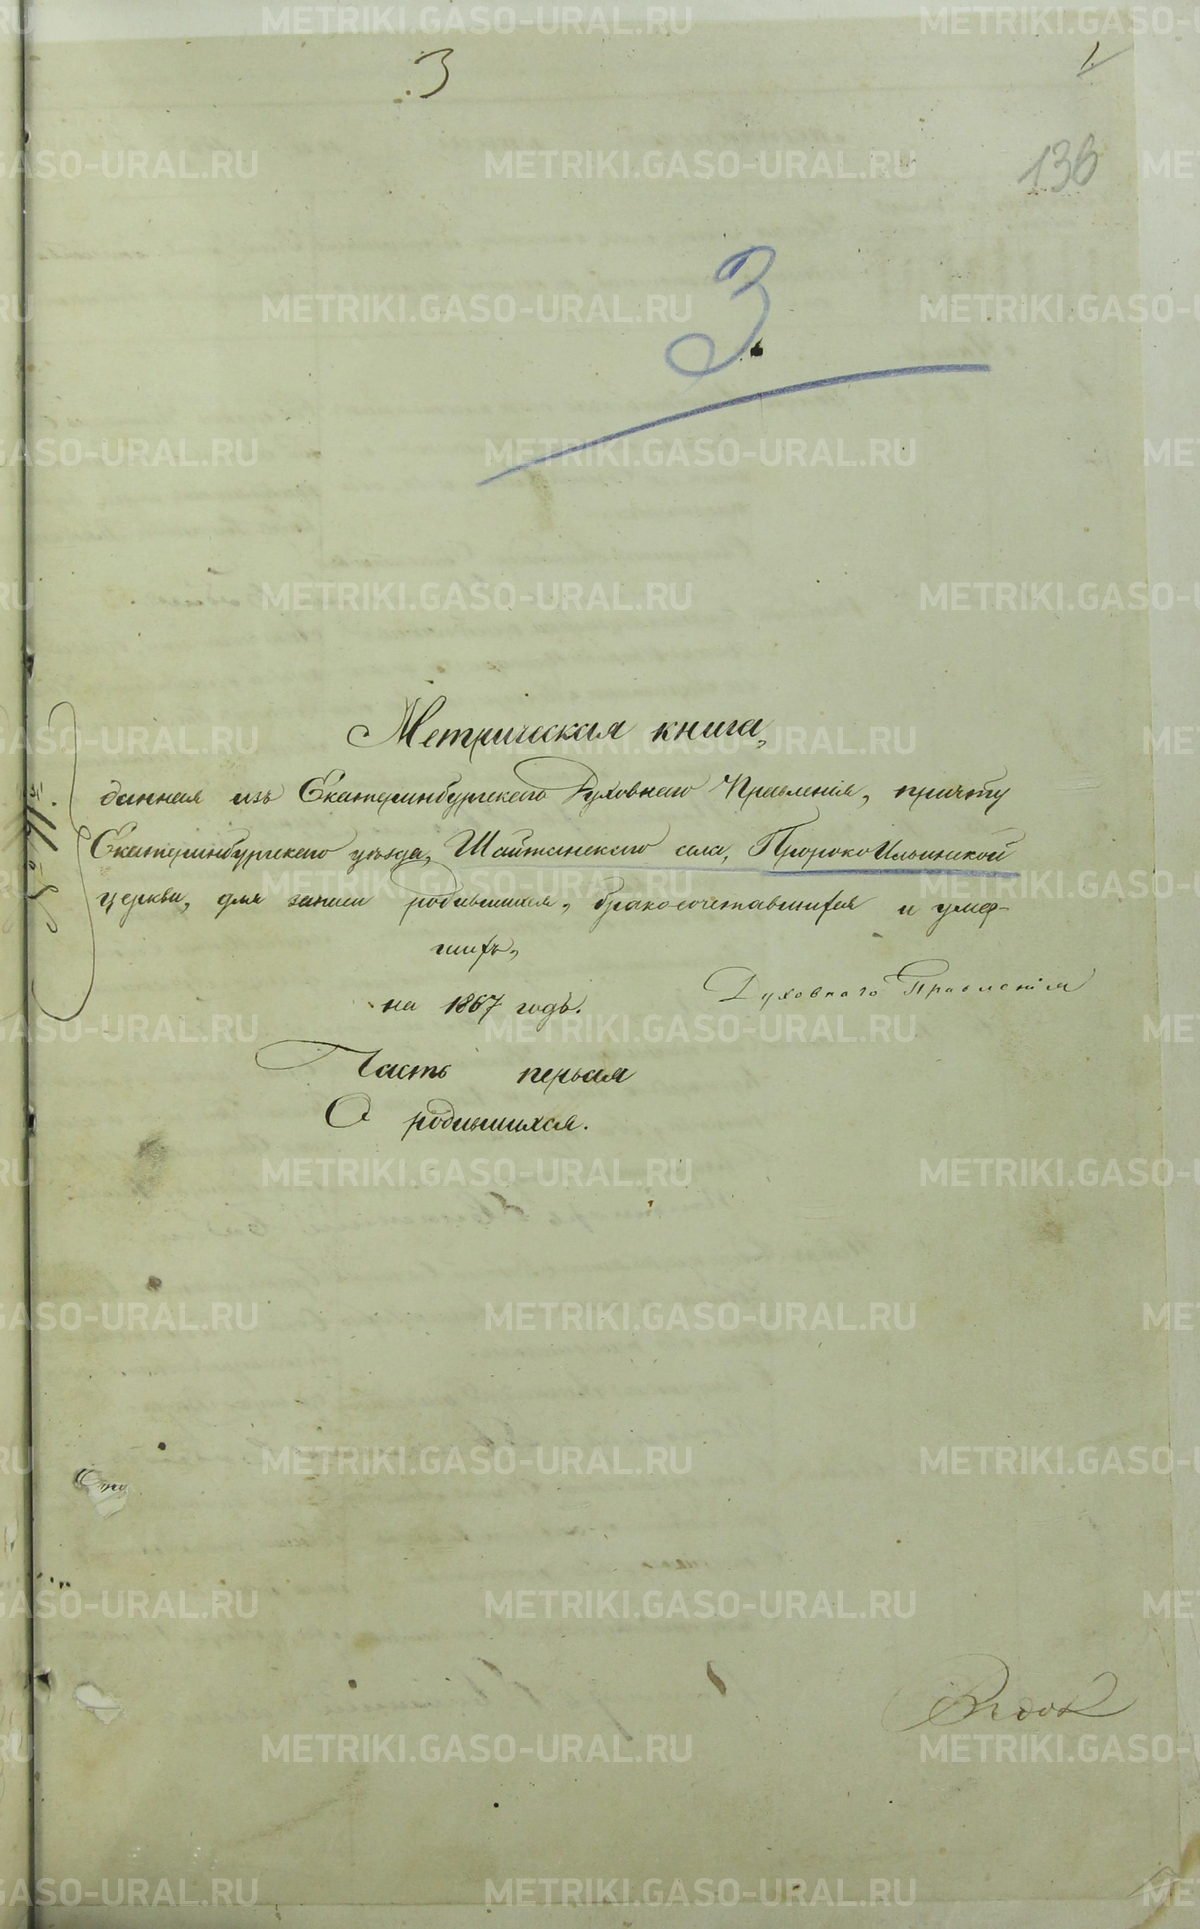 3
1
136
3
Метрическая книга,
данная изъ Екатеринбургскаго Духовнаго Правленія, причту
Екатеринбургскаго уѣзда, Шайтанскаго села, Пророко Ильинской
церкви, для записи родившихся, бракосочетавшихся и умер-
шихъ,
на 1867 годъ.
Духовнаго Правленія
Часть первая
О родившихся.
METRIKI.GASO-URAL.RU